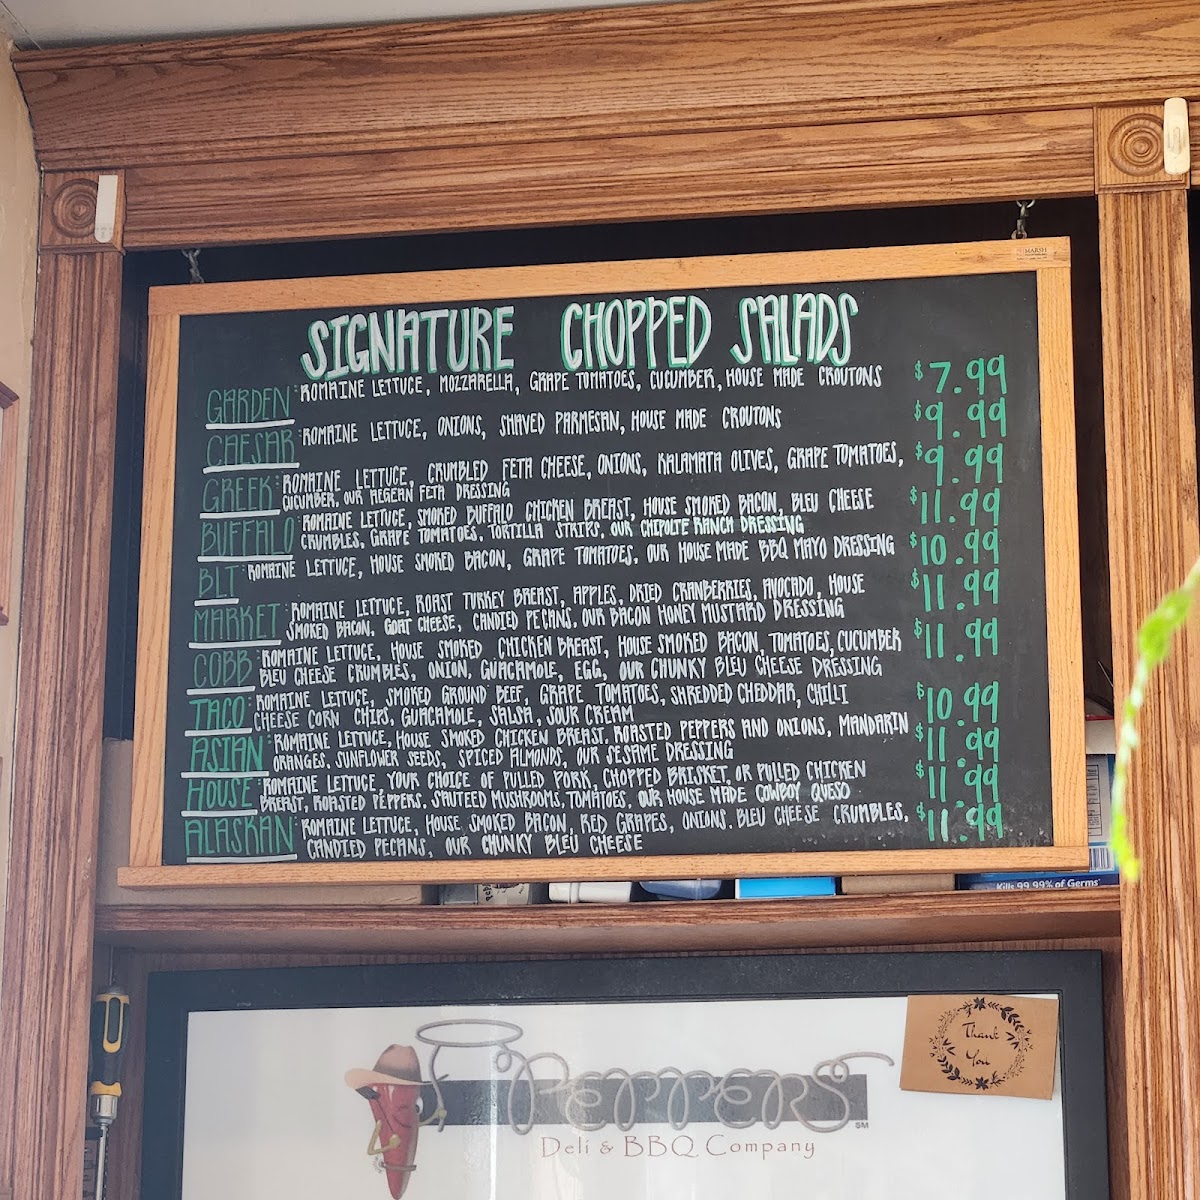 SIGNATURE CHOPPED SALADS
GARDEN: ROMAINE LETTUCE, MOZZARELLA, GRAPE TOMATOES, CUCUMBER, HOUSE MADE CROUTONS $7.99
CAESAR: ROMAINE LETTUCE, ONIONS, SHAVED PARMESAN, HOUSE MADE CROUTONS $9.99
GREEK: ROMAINE LETTUCE, CRUMBLED FETA CHEESE, ONIONS, KALAMATA OLIVES, GRAPE TOMATOES, $9.99
CUCUMBER, OUR AEGEAN FETA DRESSING
BUFFALO: ROMAINE LETTUCE, SMOKED BUFFALO CHICKEN BREAST, HOUSE SMOKED BACON, BLEU CHEESE $11.99
CRUMBLES, GRAPE TOMATOES, TORTILLA STRIPS, OUR CHIPOLTE RANCH DRESSING
BLT: ROMAINE LETTUCE, HOUSE SMOKED BACON, GRAPE TOMATOES, OUR HOUSE MADE BBQ MAYO DRESSING $10.99
MARKET: ROMAINE LETTUCE, ROAST TURKEY BREAST, APPLES, DRIED CRANBERRIES, AVOCADO, HOUSE $11.99
SMOKED BACON, GOAT CHEESE, CANDIED PECANS, OUR BACON HONEY MUSTARD DRESSING
COBB: ROMAINE LETTUCE, HOUSE SMOKED CHICKEN BREAST, HOUSE SMOKED BACON, TOMATOES, CUCUMBER $11.99
BLEU CHEESE CRUMBLES, ONION, GUACAMOLE, EGG, OUR CHUNKY BLEU CHEESE DRESSING
TACO: ROMAINE LETTUCE, SMOKED GROUND BEEF, GRAPE TOMATOES, SHREDDED CHEDDAR, CHILI $10.99
CHEESE CORN CHIPS, GUACAMOLE, SALSA, SOUR CREAM
ASIAN: ROMAINE LETTUCE, HOUSE SMOKED CHICKEN BREAST, ROASTED PEPPERS AND ONIONS, MANDARIN $11.99
ORANGES, SUNFLOWER SEEDS, SPICED ALMONDS, OUR SESAME DRESSING
HOUSE: ROMAINE LETTUCE, YOUR CHOICE OF PULLED PORK, CHOPPED BRISKET, OR PULLED CHICKEN $11.99
BREAST, ROASTED PEPPERS, SAUTEED MUSHROOMS, TOMATOES, OUR HOUSE MADE COWBOY QUESO
ALASKAN: ROMAINE LETTUCE, HOUSE SMOKED BACON, RED GRAPES, ONIONS, BLEU CHEESE CRUMBLES, $11.99
CANDIED PECANS, OUR CHUNKY BLEU CHEESE
Kills 99.99% of Germs
Thank
You
PEPPERS SM
Deli & BBQ Company